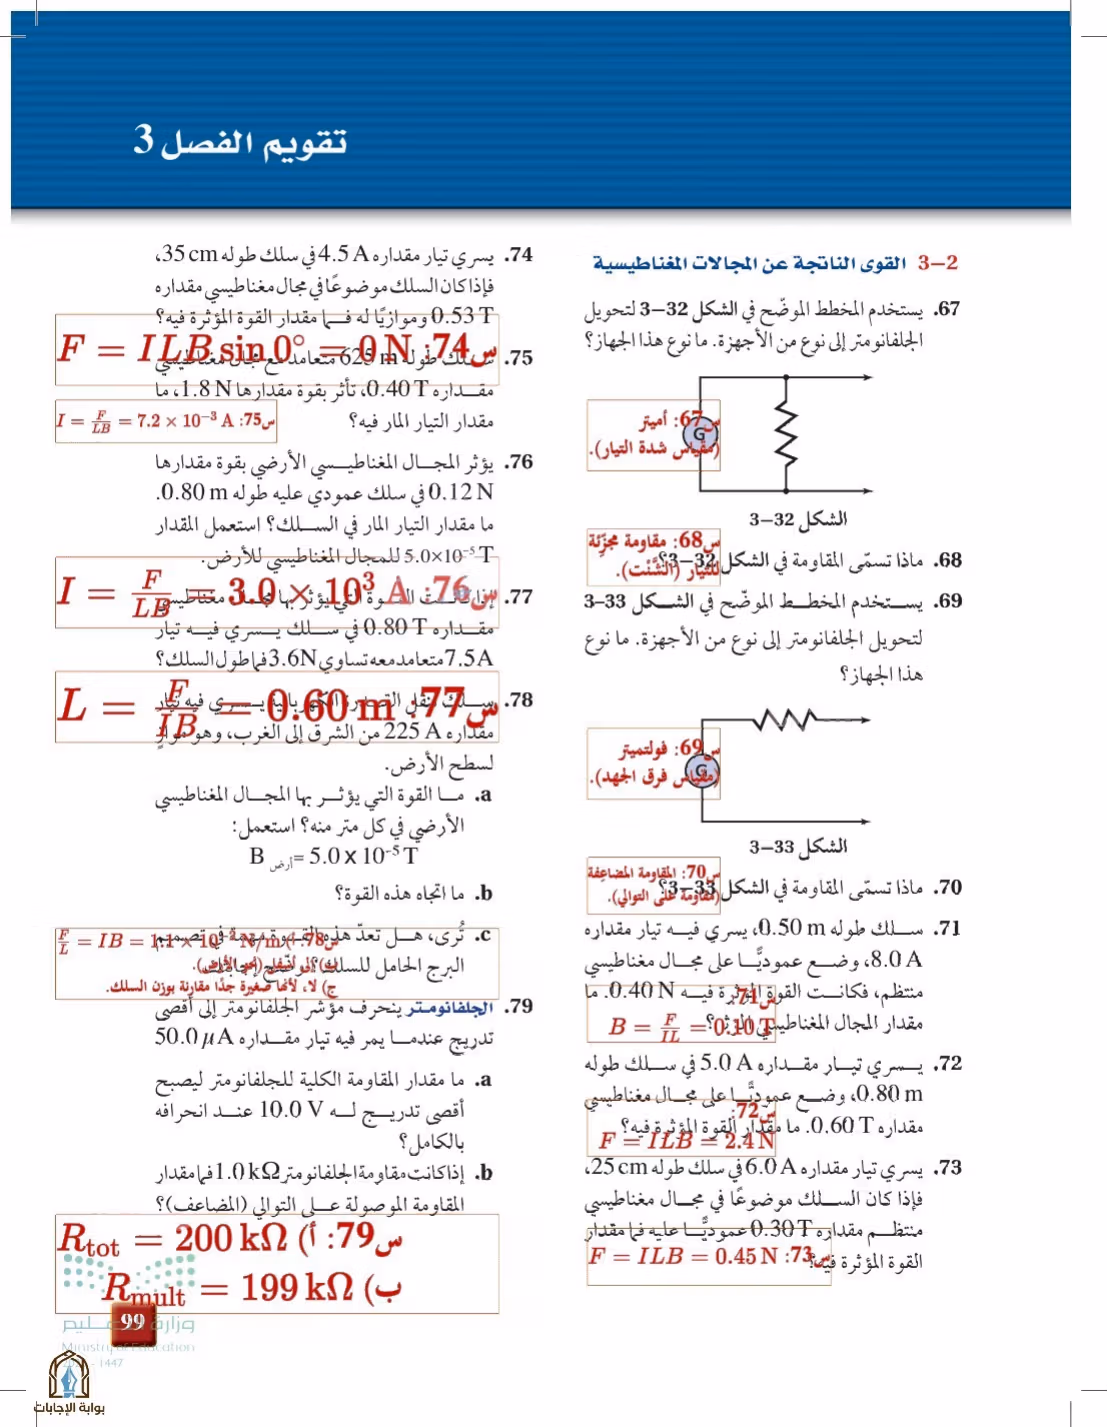 تقويم الفصل 3
3-2 القوى الناتجة عن المجالات المغناطيسية
67. يستخدم المخطط الموضّح في الشكل 32-3 لتحويل
الجلفانومتر إلى نوع من الأجهزة. ما نوع هذا الجهاز؟
س67: أميتر
(مقياس شدة التيار).
G
الشكل 32-3
س68: مقاومة مجزِّئة
للتيار (الشَّنْت).
68. ماذا تسمّى المقاومة في الشكل 32-3؟
69. يستخدم المخطط الموضّح في الشكل 33-3
لتحويل الجلفانومتر إلى نوع من الأجهزة. ما نوع
هذا الجهاز؟
س69: فولتميتر
(مقياس فرق الجهد).
G
الشكل 33-3
س70: المقاومة المضاعِفة
(مقاومة على التوالي).
70. ماذا تسمّى المقاومة في الشكل 33-3؟
71. سلك طوله 0.50 m، يسري فيه تيار مقداره
8.0 A، وضع عموديًّا على مجال مغناطيسي
منتظم، فكانت القوة المؤثرة فيه 0.40 N. ما
مقدار المجال المغناطيسي المؤثر؟
س71:
B = F/IL = 0.10 T
72. يسري تيار مقداره 5.0 A في سلك طوله
0.80 m، وضع عموديًّا على مجال مغناطيسي
مقداره 0.60 T. ما مقدار القوة المؤثرة فيه؟
س72:
F = ILB = 2.4 N
73. يسري تيار مقداره 6.0 A في سلك طوله 25 cm،
فإذا كان السلك موضوعًا في مجال مغناطيسي
منتظم مقداره 0.30 T عموديًّا عليه فما مقدار
القوة المؤثرة فيه؟
س73: F = ILB = 0.45 N
74. يسري تيار مقداره 4.5 A في سلك طوله 35 cm،
فإذا كان السلك موضوعًا في مجال مغناطيسي مقداره
0.53 T وموازيًا له فما مقدار القوة المؤثرة فيه؟
س74: F = ILB sin 0° = 0 N
75. سلك طوله 625 m متعامد مع مجال مغناطيسي
مقداره 0.40 T، تأثر بقوة مقدارها 1.8 N، ما
مقدار التيار المار فيه؟
س75: I = F/LB = 7.2 × 10⁻³ A
76. يؤثر المجال المغناطيسي الأرضي بقوة مقدارها
0.12 N في سلك عمودي عليه طوله 0.80 m.
ما مقدار التيار المار في السلك؟ استعمل المقدار
5.0×10⁻⁵ T للمجال المغناطيسي للأرض.
س76: I = F/LB = 3.0 × 10³ A
77. إذا كانت القوة التي يؤثر بها مجال مغناطيسي
مقداره 0.80 T في سلك يسري فيه تيار
7.5 A متعامد معه تساوي 3.6 N فما طول السلك؟
س77: L = F/IB = 0.60 m
78. سلك لنقل القدرة الكهربائية يسري فيه تيار
مقداره 225 A من الشرق إلى الغرب، وهو موازٍ
لسطح الأرض.
a. ما القوة التي يؤثر بها المجال المغناطيسي
الأرضي في كل متر منه؟ استعمل:
B أرض = 5.0 x 10⁻⁵ T
b. ما اتجاه هذه القوة؟
c. تُرى، هل تعدّ هذه القوة مهمة في تصميم
البرج الحامل للسلك؟ وضّح إجابتك.
س78: أ) F/L = IB = 1.1 × 10⁻² N/m
ب) إلى أسفل (نحو الأرض).
ج) لا، لأنها صغيرة جدًا مقارنة بوزن السلك.
79. الجلفانومتر ينحرف مؤشر الجلفانومتر إلى أقصى
تدريج عندما يمر فيه تيار مقداره 50.0 μA
a. ما مقدار المقاومة الكلية للجلفانومتر ليصبح
أقصى تدريج له 10.0 V عند انحرافه
بالكامل؟
b. إذا كانت مقاومة الجلفانومتر 1.0 kΩ فما مقدار
المقاومة الموصولة على التوالي (المضاعف)؟
س79: أ) Rtot = 200 kΩ
ب) Rmult = 199 kΩ
وزارة التعليم
99
Ministry of Education
- 1447
بوابة الإجابات